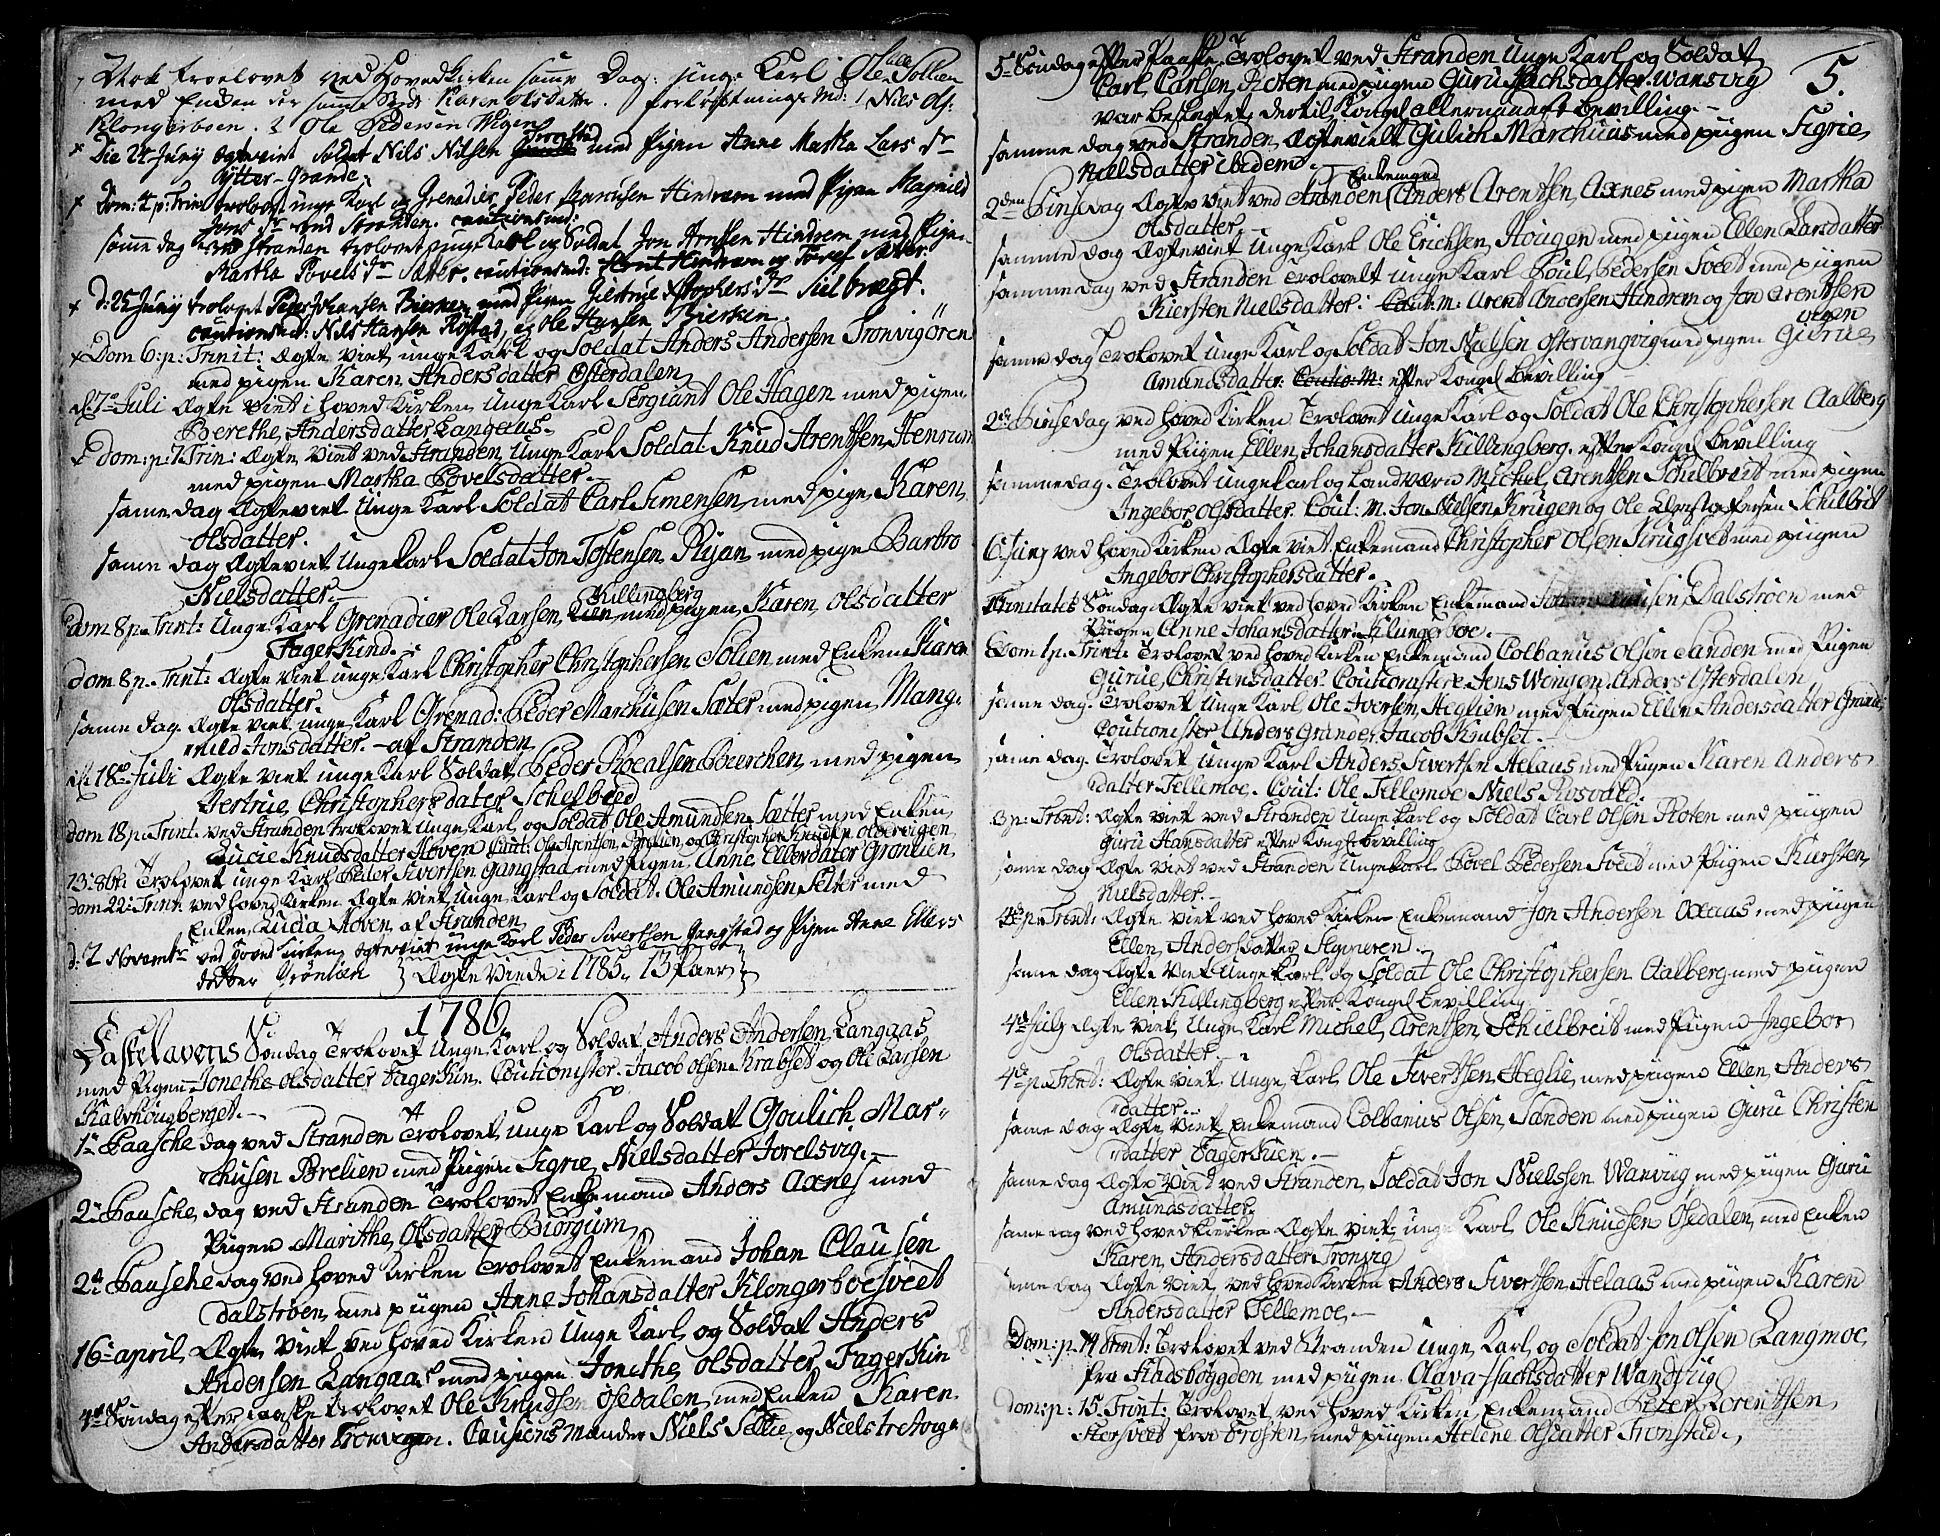 Nok troelovet ved Hovedkirken samme Dag: unge Karl Ole Sollien
med Enken Karen Olsdatter. forløftnings Md: 1 Nils Ols:
Klongerboen. 2 Ole Pedersen Wigen
Die 24 Juny ægteviet Soldat Nils Nilsen Tronstad med Pigen Anne Martha Lars Dr
Rytter-Grande.
Dom: 4 p: Trin: trolovet unge Karl og Grenadier Peder Marcusen Hindrem med Pigen Magnild
Jons Dr ved Stranden. cautionsmd:
samme dag ved Stranden trolovet unge Karl og Soldat Jon Arntsen Hindrem med Pigen
Martha Povels Dr Sætter. cautionsmd: Arent Hindrem og Povel Sætter.
D: 25 Juny trolovet Peder Johansen Bierken med Pigen Giertrue Xstophers Dr Skielbreit.
cautionsmd: Nils Hansen Rostad, og Ole Hansen Bierken.
Dom 6: p: Trinit: Ægte Viet unge Karl og Soldat Anders Andersen Tronvigören
med pigen Karen Andersdatter Österdalen
d: 7de Juli Ægte Viet i hoved Kirken Unge Karl Sergiant Ole Hagen med pigen
Berethe Andersdatter Langaas.
dom: p: 7 Trin: Ægte Viet ved Stranden Unge Karl Soldat Knud Arentsen Henrim
med pigen Martha Povelsdatter.
same dag Ægte viet Unge Karl Soldat Carl Simensen med pige Karen
Olsdatter.
same dag Ægte viet Unge Karl Soldat Jon Tostensen Ryan med pige Barbro
Nielsdatter.
Killingberg
dom 8 p. Trint: Unge Karl Grenadier Ole Larsen Lien med pigen Karen Olsdatter
FagerKind.
dom 8 p. Trint: Ægte Viet unge Karl Christopher Christophersen Solien med Enken Karen
Olsdatter.
same dag. Ægte viet unge Karl Grenad: Peder Marchusen Sæter med pigen Mang-
nild Jonsdatter. - af Stranden
d: 18de Juli Ægte Viet unge Karl Soldat Peder Bierchen med pigen
Giertrue Christophersdater Schelbred
dom 18 p. Trint. ved Stranden trolovet Unge Karl og Soldat Ole Amundsen Sætter med Enken
Lucie Knudsdatter Moven Caut: Ole Arentsen Brelien og Christopher Knudsen Olbervigen
23: 8br: Trolovet unge Karl Peder Sivertsen gangstad med Pigen Anne Ellersdater Grönlien
dom 22: Trint. ved hoved Kirken Ægte Viet Unge Karl og Soldat Ole Amundsen Setter med
Enken Lucia Moven af Stranden
d: 2 Novembr ved Hoved Kirken ægteviet unge Karl Peder Sivertsen Gangstad og Pigen Anne Ellers
datter Grönlien } Ægte Viede i 1785. 13 Paer }
1786.
Fastelavens Söndag Trolovet Unge Karl og Soldat Anders Andersen Langaas
med Pigen Jonethe Olsdatter Fagerkin. Coutionister: Jacob Olsen Krabset og Ole Larsen
Kalvhougberget.
1te Paasche dag ved Stranden Trolovet unge Karl og Soldat Goulich Mar-
chusen Brelien med Pigen Sigrie Nielsdatter Forelsvig.
2den Paasche dag ved Stranden Trolovet Enkemand Anders Axnes med
Piigen Marithe Olsdatter Biorgum
2den Paasche dag ved hoved Kirken Trolovet Enkemand Johan Clausen
dalströen med piigen Anne Johansdatter Klongerboesveet
16de april Ægte Viet ved hoved Kirken Unge Karl og Soldat Anders
Andersen Langaas med pigen Jonethe Olsdatter FagerKin
4de Söndag efter paaske trolovet Ole Knudsen Osedalen med Enken Karen
Andersdatter Tronvigen. Causions mænder Niels Sellie og Niels
5te Söndag efter Paaske Trolovet ved Stranden Unge Karl og Soldat
5.
Carl Carlsen Roten med pigen Guru Isachsdatter Wansvig
var beslegtet dertil Kongel allernaadigst Bevilling.
samme dag ved Stranden Ægte viet Gulich Marchuus med pigen Sigrie
Nielsdatter ibidem.
2den Pinsedag Ægte Viet ved Stranden Enkemand Anders Arentsen Axnes med pigen Martha
Olsdatter.
samme dag Ægte viet Unge Karl Ole Erichsen Hougen med pigen Ellen Larsdatter
samme dag ved Stranden Trolovet unge Karl Poul Pedersen Sveet med pigen
Kiersten Nielsdatter: Cout: M: Arent Andersen Hindrem og Jon Arentsen
vegen
samme dag Trolovet Unge Karl og Soldat Jon Nielsen Ostervangvig med pigen Guru
Amundsdatter: Coutio: M: efter Kongel Bevilling
2de Pinsedag ved hoved Kirken Trolovet Unge Karl og Soldat Ole Christophersen Aalberg
med Piigen Ellen Johansdatter Killingberg. efter Kongel Bevilling
samme dag. Trolovet Unge Karl og Landværn Michel Arentsen Schilbreit med pigen
Ingebor Olsdatter. Cout: M. Jon Nielsen Krugen og Ole Christophersen Schilbrit
6 Juny ved hoved Kirken Ægte Viet Enkemand Christopher Olsen Krugsvet med piigen
Ingebor Christophersdatter.
Trinitatis Söndag Ægte viet ved hoved Kirken Enkemand Johan Clausen Dalströen med
Piigen Anne Johansdatter Klungerboe.
Dom 1 p. Trint: Trolovet ved hoved Kirken Enkemand Colbanius Olsen Sanden med Pigen
Gurue Christensdatter. Coutionister Jens Wongen. Anders Österdalen
same dag. Trolovet Unge Karl Ole Iversen Heglien med Piigen Ellen Andersdatter Grande
Coutionister Anders Grande. Jacob Krabset.
same dag. Trolovet Unge Karl Anders Sivertsen Aelaas med Pigen Karen Anders
datter Tellemoe. Cout: Ole Tellemoe Niels Rosvold.
3 p: Trint: Ægte viet ved Stranden Unge Karl og Soldat Carl Olsen Roten med piigen
Guru Hansdatter efter Kongl bevilling
same dag Ægte viet ved Stranden Unge Karl Povel Pedersen Sveet med Piigen Kiersten
Nielsdatter.
3de p. Trint: Ægte Viet ved hoved Kirken Enkemand Jon Andersen Oxaas med piigen
Ellen Andersdatter Segmoren.
same dag Ægte Viet Unge Karl og Soldat Ole Christophersen Aalberg med piigen
Ellen Killingberg efter Kongel bevilling
4de July Ægte viet Unge Karl Michel Arentsen Schielbreit med Piigen Ingebor
Olsdatter.
4de p. Trint: Ægte viet Unge Karl Ole Sivertsen Heglie med pigen Ellen Anders
datter.
same dag Ægte Viet Enkemand Colbanius Olsen Sanden med piigen Guru Christen
datter Fagerkien.
same dag Ægte Viet ved Stranden Soldat Jon Nielssen Wanviig med piigen Guru
Amundsdatter.
same dag ved hoved Kierken Ægte viet unge Karl Ole Knudsen Osedalen med Enken
Karen Andersdatter Tronvig
same dag Ægte viet ved hoved Kirken Anders Sivertsen Aelaas med pigen Karen
Andersdatter Tellemoe.
Dom: p. 14 Trint: Trolovet ved Stranden Unge Karl og Soldat Jon Olsen Langmoe
fra Stadsbøygden med piigen Olava Isachsdatter Wandsvig
Dom: p: 15 Trint: Trolovet ved hoved Kirken Enkemand Peter Lorentsen
Hersveet fra Frosten med pigen Helene Olsdatter Tronstad.